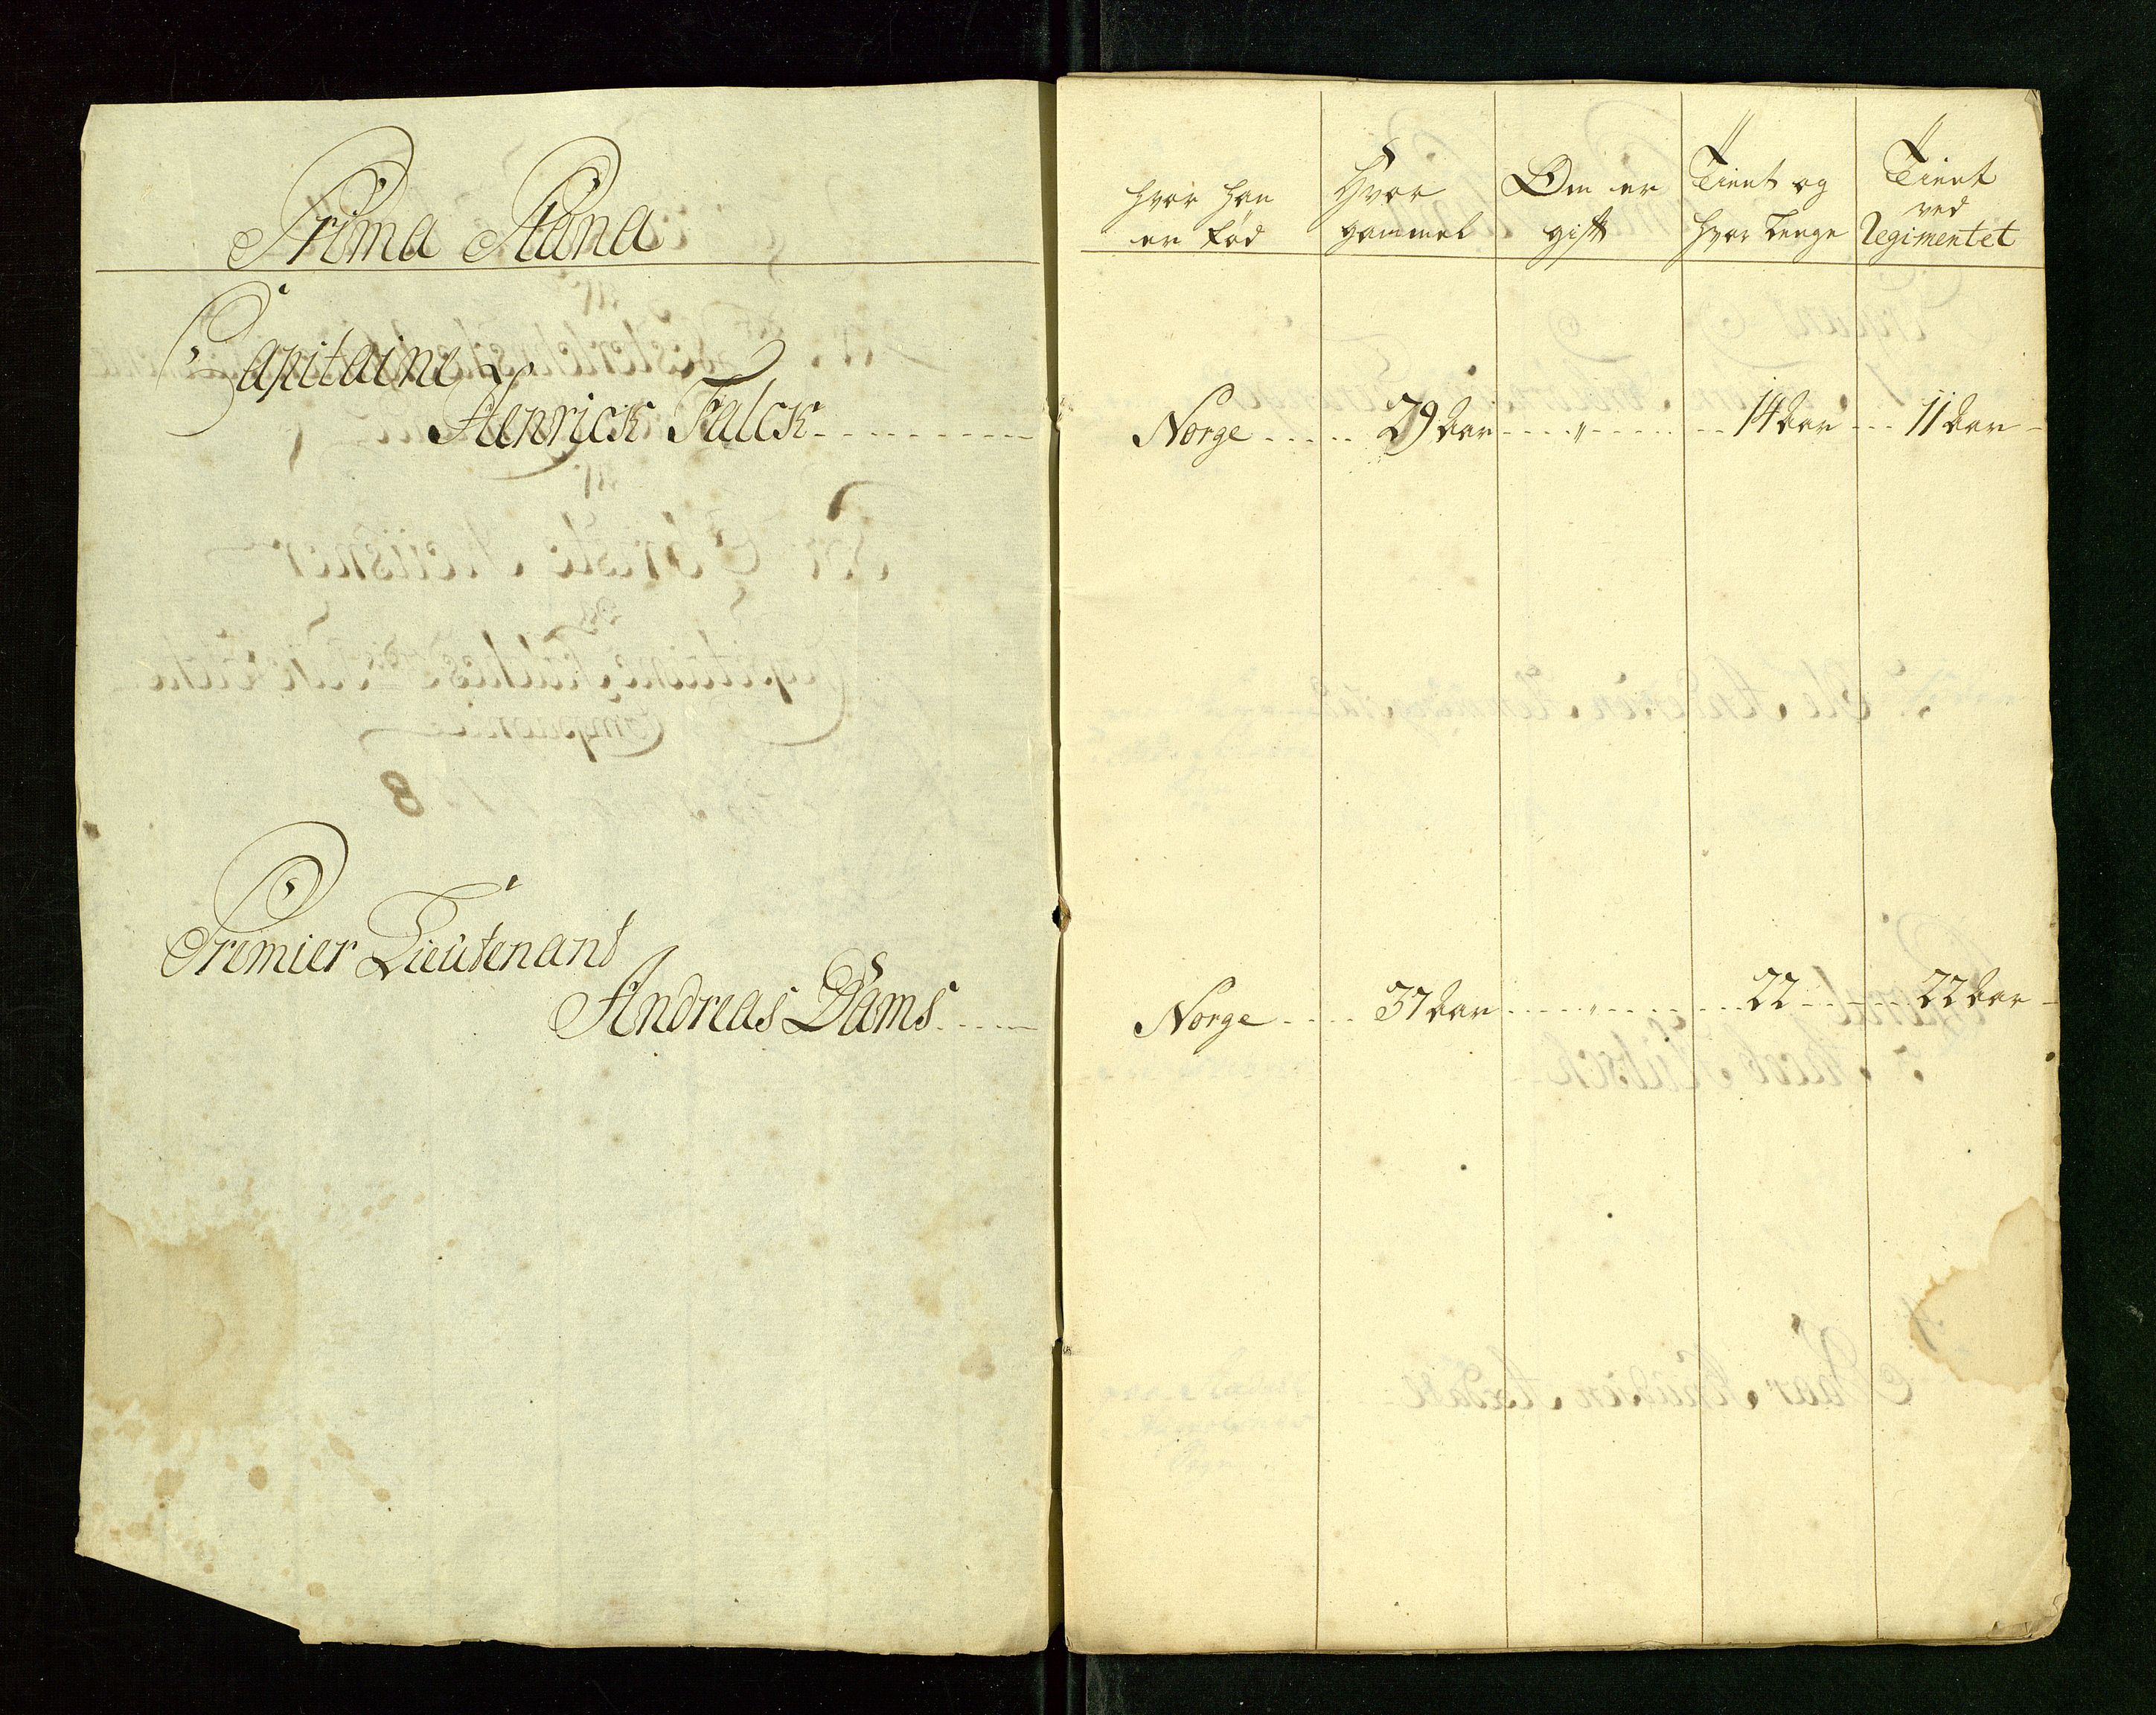 Prima Plana
Capitaine
Henrick Falck
Premier Lieutenant
Andreas Dams
hvor han er Fød
Hvor gammel
Om er gift
Tient og hvor Lenge
Tient ved Regimentet
Norge 29 Aar " 14 Aar 11 Aar
Norge 37 Aar " 22 22 Aar